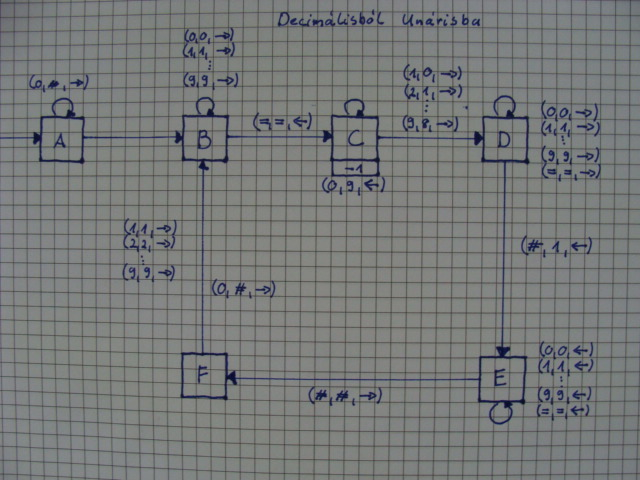 Decimálisból Unárisba
(0,0,→)
(1,1,→)
⋮
(9,9,→)
(0,#,→)
(1,0,→)
(2,1,→)
⋮
(9,8,→)
A
B
(=,=,←)
C
D
(0,0,→)
(1,1,→)
⋮
(9,9,→)
(=,=,→)
-1
(0,9,←)
(1,1,→)
(2,2,→)
⋮
(9,9,→)
(#,1,←)
(0,#,→)
F
E
(0,0,←)
(1,1,←)
⋮
(9,9,←)
(=,=,←)
(#,#,→)